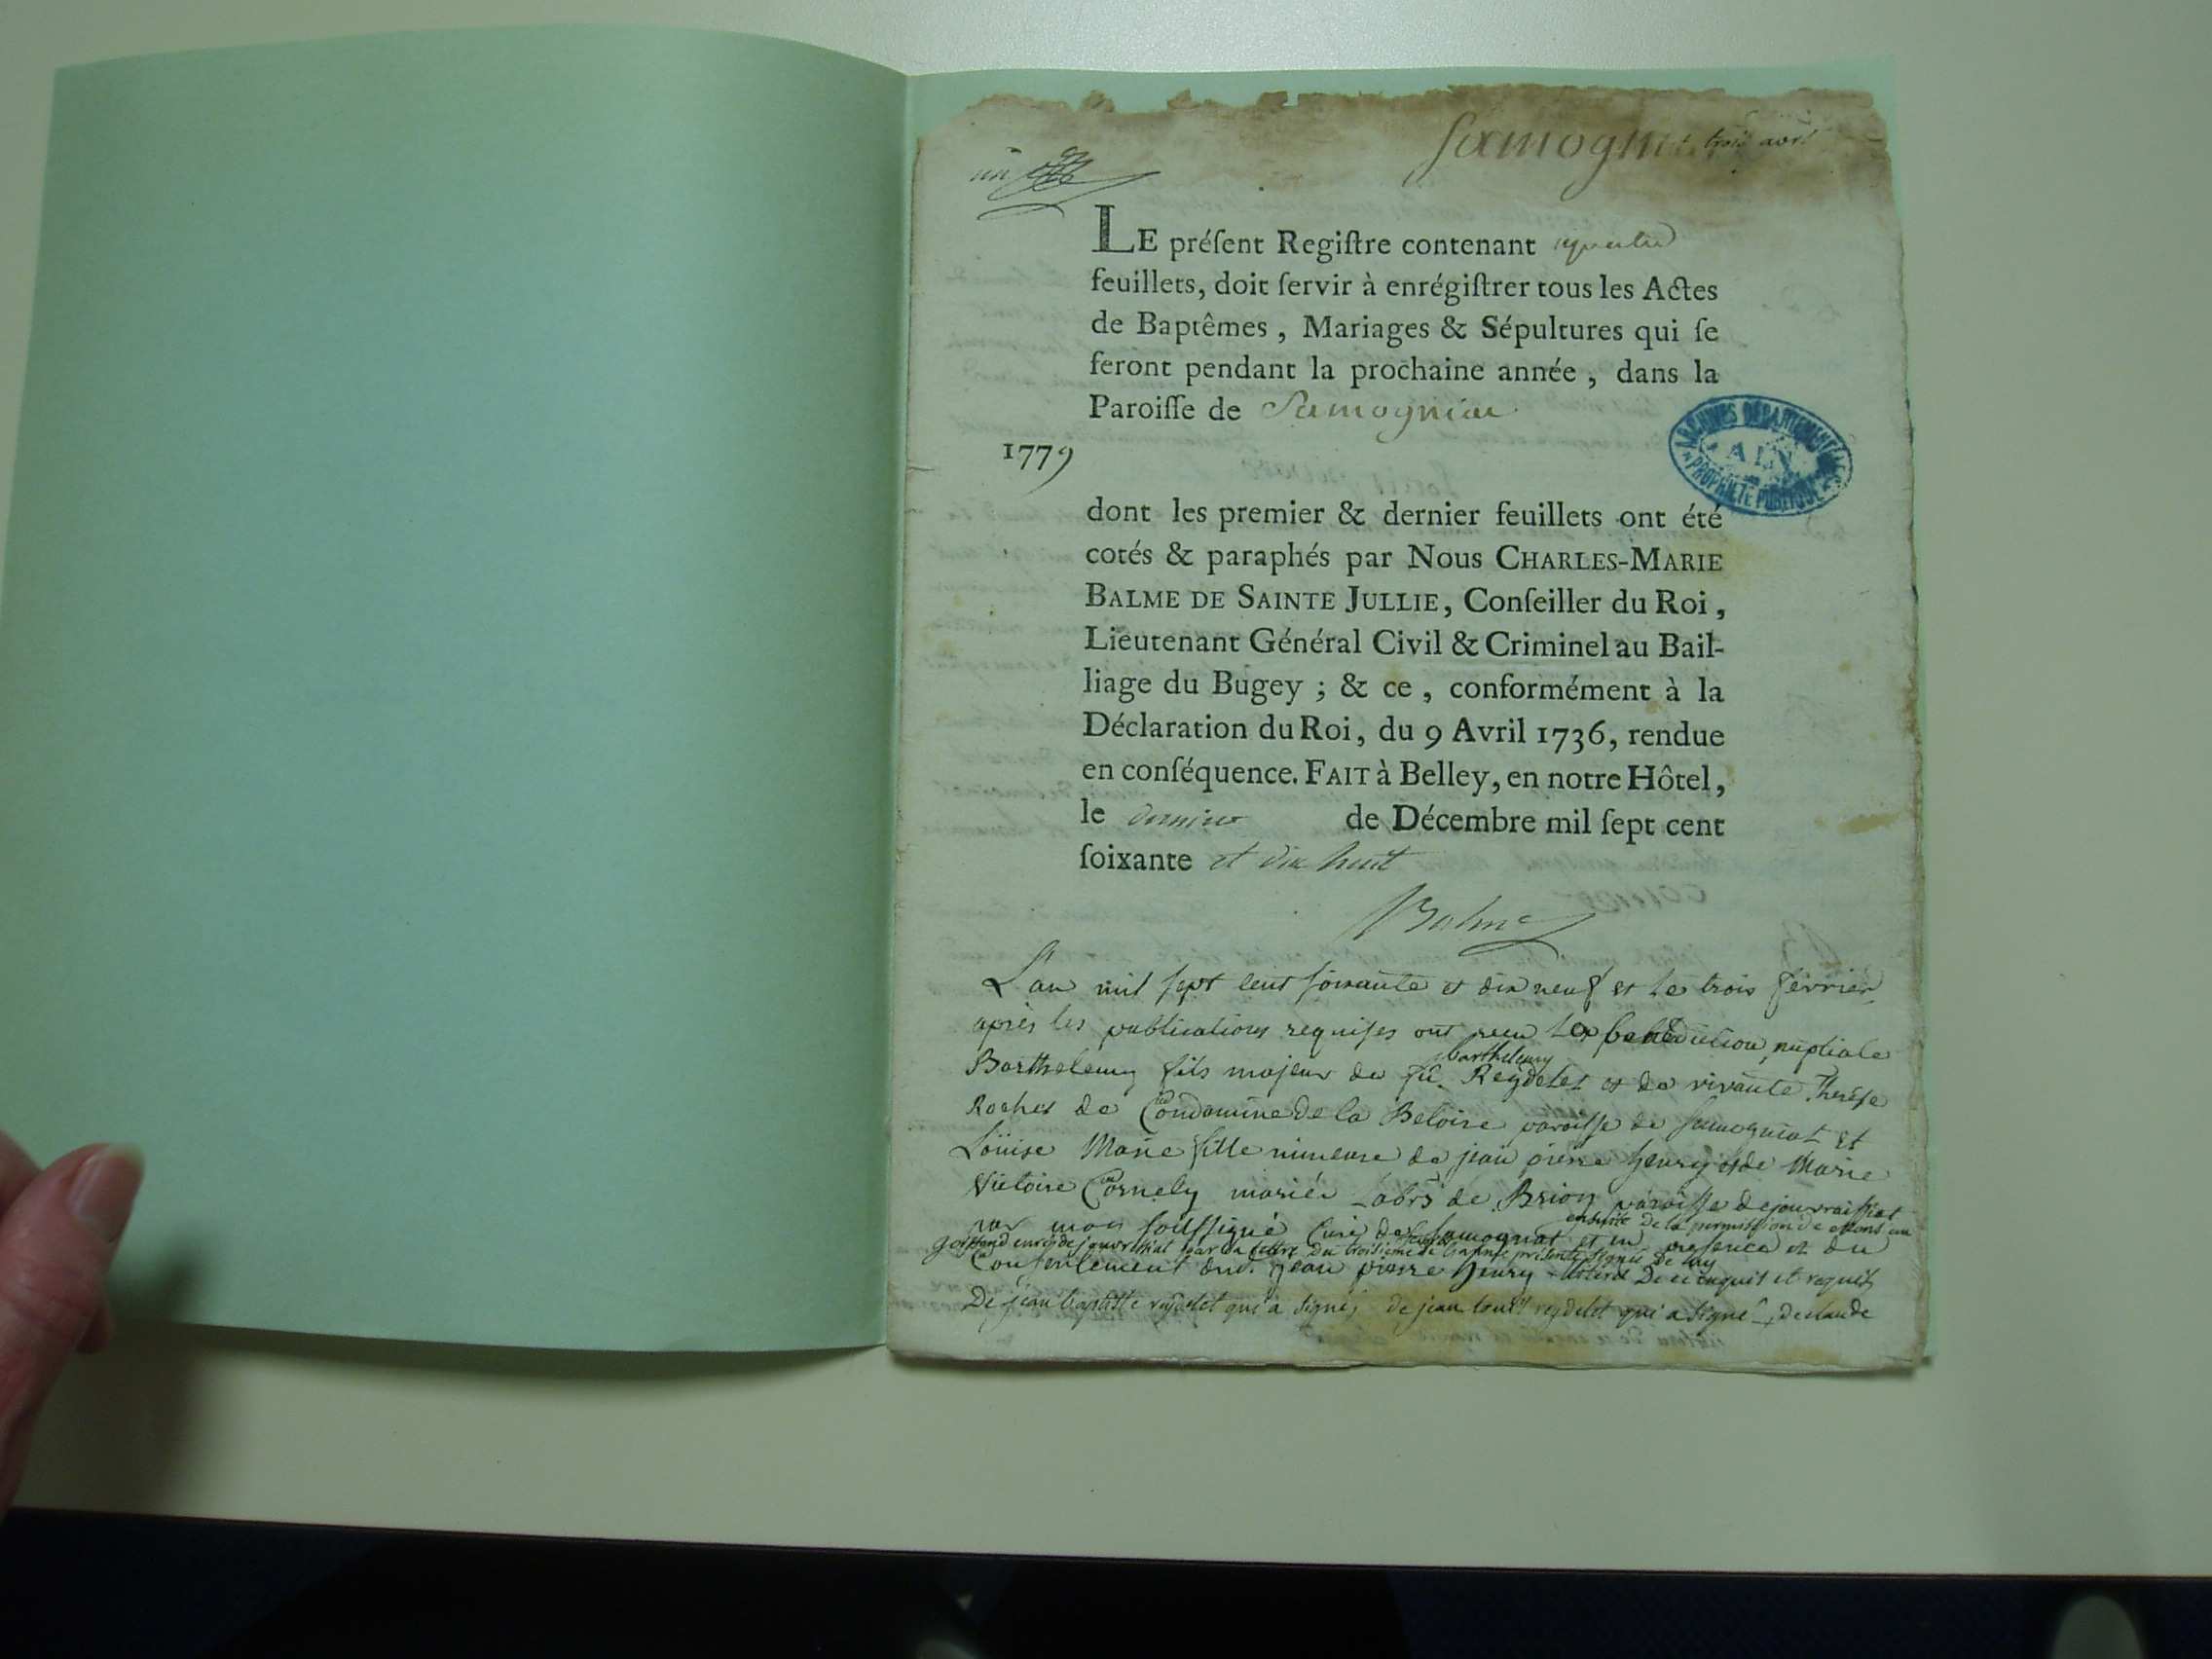 un
Samogniat trois avril
LE préſent Regiſtre contenant quatre
feuillets, doit ſervir à enrégiſtrer tous les Actes
de Baptêmes, Mariages & Sépultures qui ſe
feront pendant la prochaine année, dans la
Paroiſſe de Samogniat
ARCHIVES DÉPARTEMENTALES
AIN
PROPRIÉTÉ PUBLIQUE
1779
dont les premier & dernier feuillets ont été
cotés & paraphés par Nous CHARLES-MARIE
BALME DE SAINTE JULLIE, Conſeiller du Roi,
Lieutenant Général Civil & Criminel au Bail-
liage du Bugey ; & ce, conformément à la
Déclaration du Roi, du 9 Avril 1736, rendue
en conſéquence. FAIT à Belley, en notre Hôtel,
le dernier de Décembre mil ſept cent
ſoixante et dix huit
Balme
L'an mil sept cent soixante et dix neuf et le trois février
après les publications requises ont reçu la benediction nuptiale
barthelemy
Barthelemy fils majeur de fû Reydelet et de vivante Therése
Rochet de Condamine de la Beloire paroisse de samogniat et
Loüise Marie fille mineure de jean pierre henry et de Marie
Victoire Cornely mariés labrs de Brion paroisse de jouvraissiat
ensuite de la permission de
par moy soussigné Curé de Samogniat et en presence et du
curé de par sa lettre du troisieme de l'année présente signée de luy
Consentement dud. jean pierre henry De ce enquit et requis
De jean baptiste reydelet qui a signé, de jean louis reydelet qui a signé, de claude